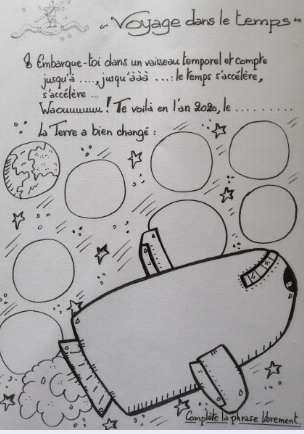 "Voyage dans le temps"
8 Embarque-toi dans un vaisseau temporel et compte
jusqu'à ...., jusqu'ààà ...: le temps s'accélère,
s'accélère ...
Waouuuuuu! Te voilà en l'an 2020, le .........
La Terre a bien changé :
Complète la phrase librement.